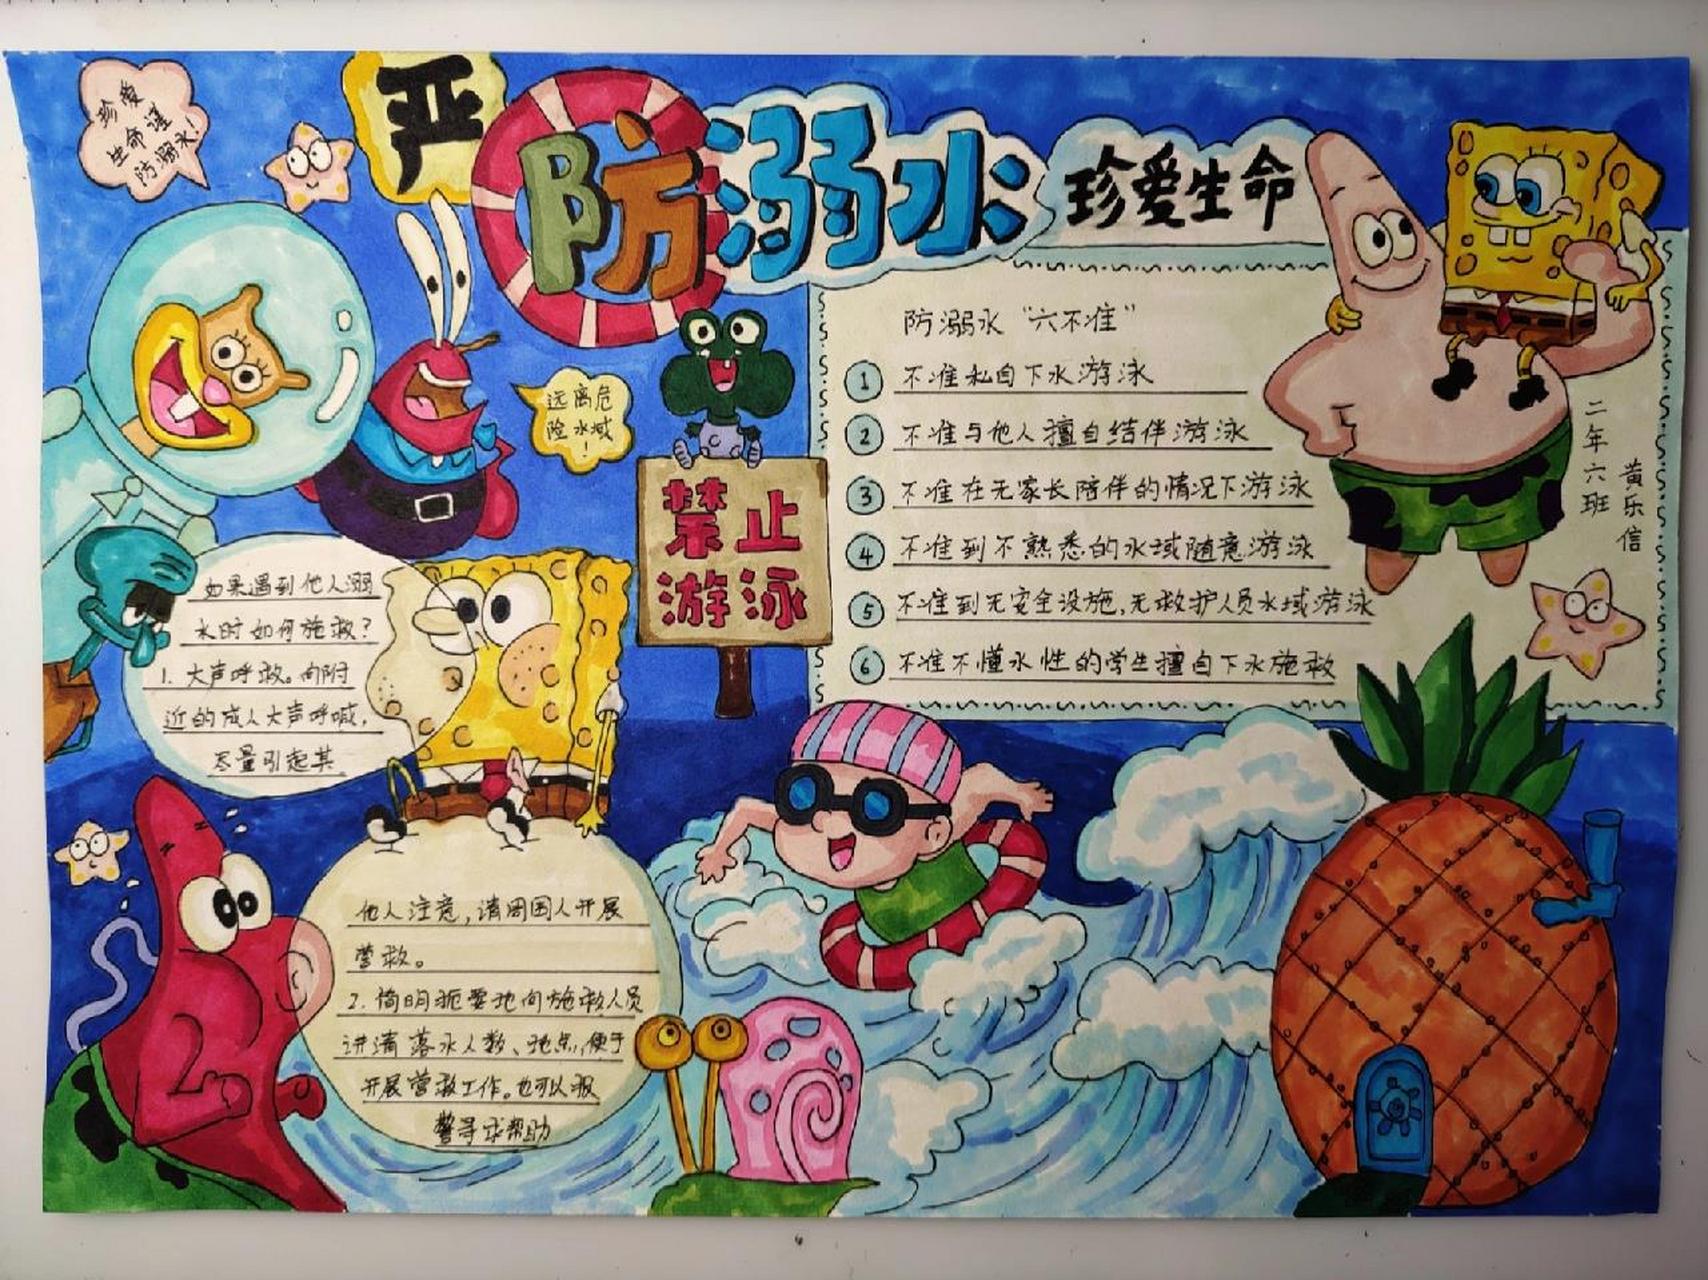 珍爱
生命谨
防溺水!
严
防溺水
珍爱生命
远离危
险水域
!
禁止
游泳
防溺水“六不准”
① 不准私自下水游泳
② 不准与他人擅自结伴游泳
③ 不准在无家长陪伴的情况下游泳
④ 不准到不熟悉的水域随意游泳
⑤ 不准到无安全设施,无救护人员水域游泳
⑥ 不准不懂水性的学生擅自下水施救
二年六班
黄乐信
如果遇到他人溺
水时如何施救?
1. 大声呼救。向附
近的成人大声呼喊,
尽量引起其
他人注意,请周围人开展
营救。
2. 简明扼要地向施救人员
讲清落水人数、地点,便于
开展营救工作。也可以报
警寻求帮助